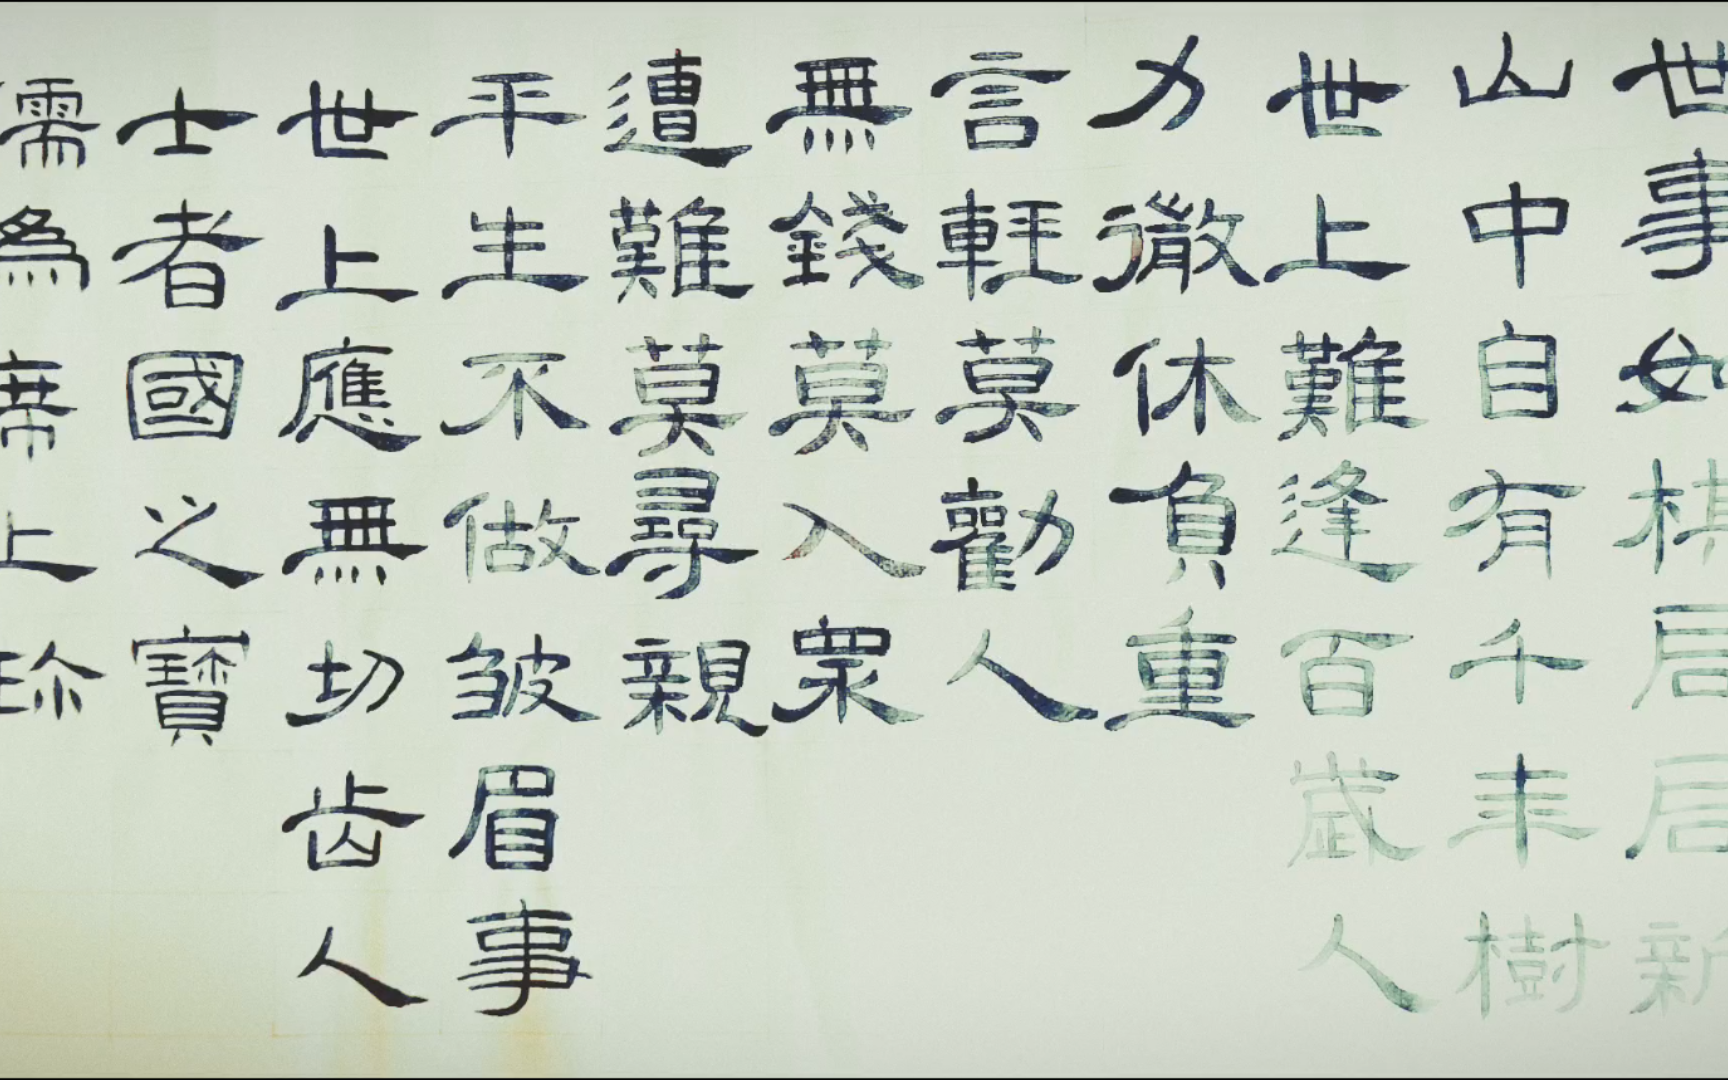 世事如棋局局新
山中自有千年樹
世上難逢百歲人
力微休負重
言輕莫勸人
無錢莫入眾
遭難莫尋親
平生不做皺眉事
世上應無切齿人
士者國之寶
儒為席上珎